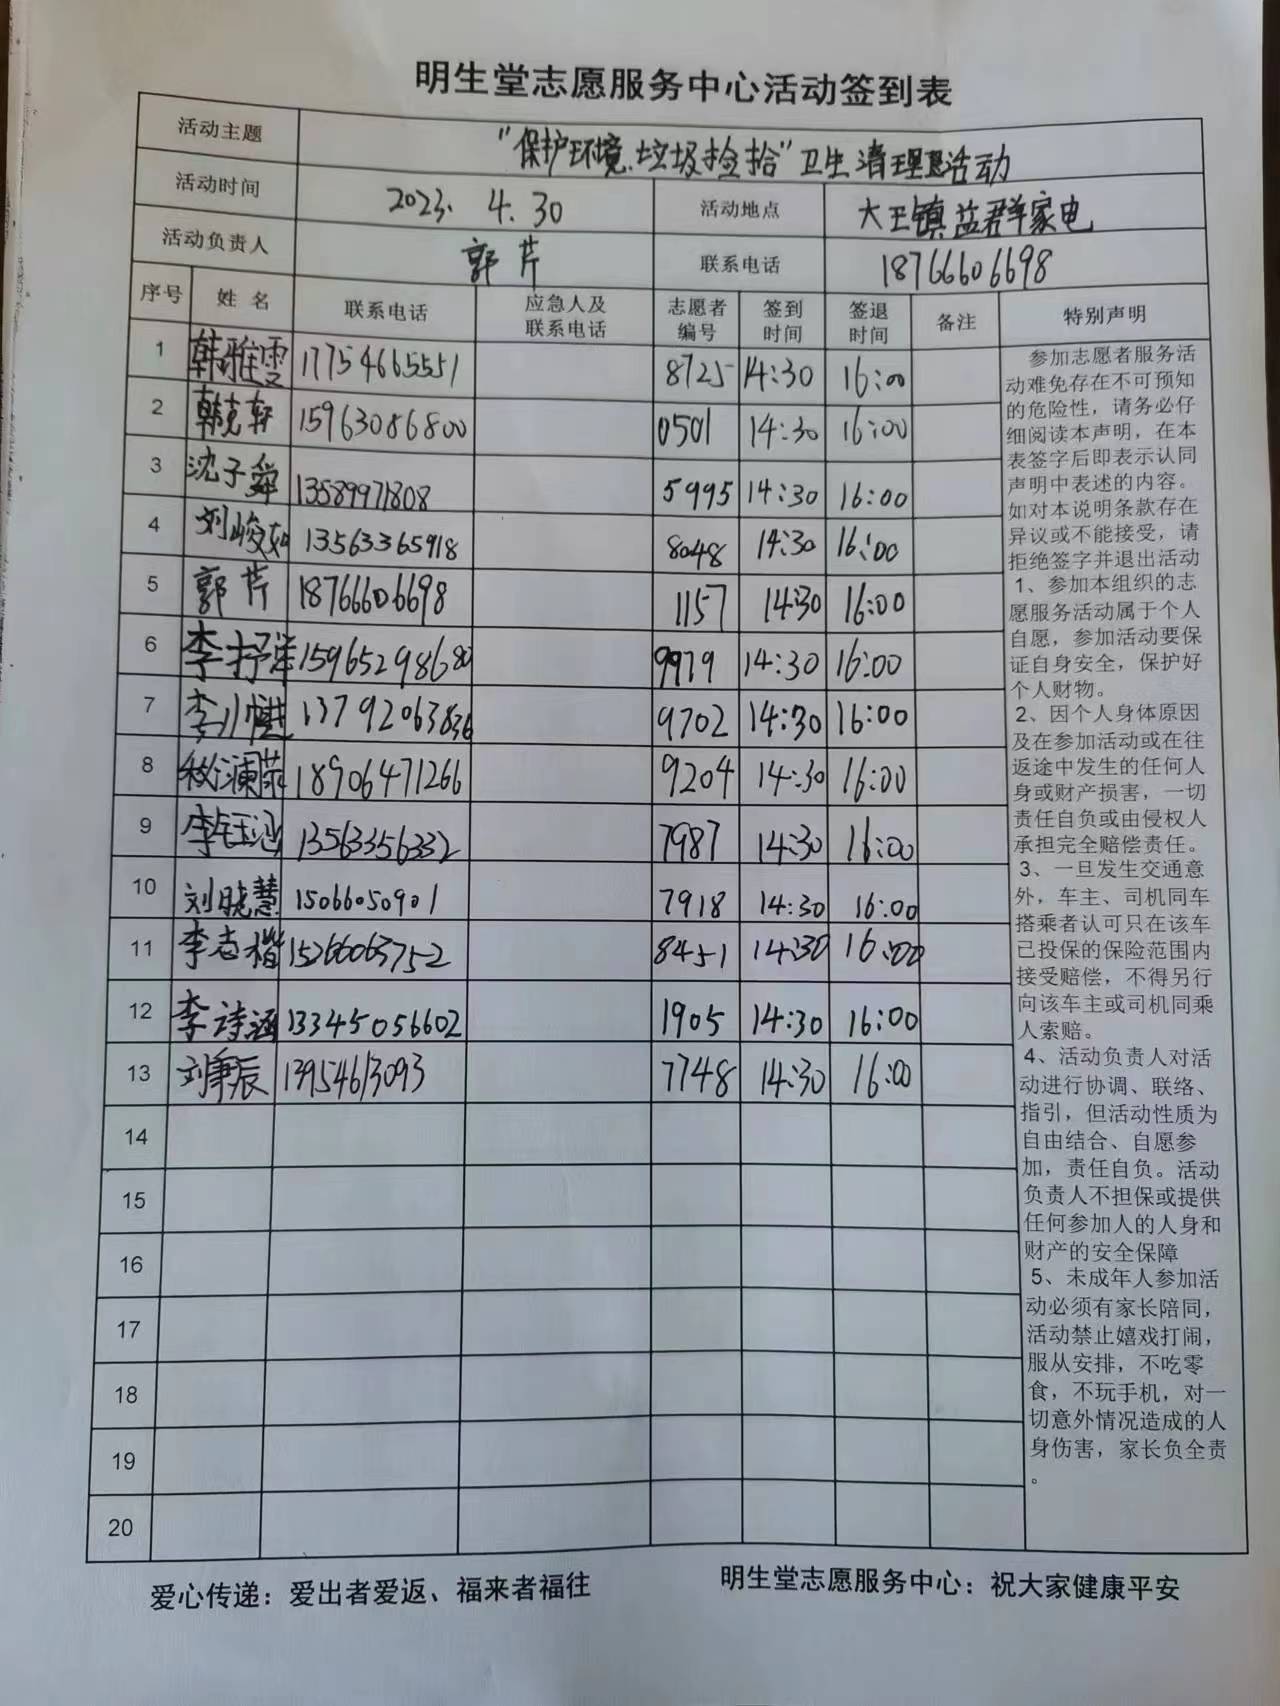 明生堂志愿服务中心活动签到表
活动主题 "保护环境.垃圾捡拾"卫生清理活动
活动时间 2023. 4.30 活动地点 大王镇益群家电
活动负责人 郭芹 联系电话 18766606698
序号 姓名 联系电话 应急人及联系电话 志愿者编号 签到时间 签退时间 备注 特别声明
1 韩雅雯 17754665551 8725 14:30 16:00
2 韩克轩 15963086800 0501 14:30 16:00
3 沈子舜 13589971808 5995 14:30 16:00
4 刘峻如 13563365918 8048 14:30 16:00
5 郭芹 18766606698 1157 14:30 16:00
6 李抒洋 15965298680 9979 14:30 16:00
7 李 13792063836 9702 14:30 16:00
8 18906471266 9204 14:30 16:00
9 李钰涵 13563356332 7987 14:30 16:00
10 刘晓慧 15066050901 7918 14:30 16:00
11 李志楷 15266063752 8451 14:30 16:00
12 李诗涵 13345056602 1905 14:30 16:00
13 刘秉辰 13954613093 7748 14:30 16:00
14
15
16
17
18
19
20
参加志愿者服务活
动难免存在不可预知
的危险性，请务必仔
细阅读本声明，在本
表签字后即表示认同
声明中表述的内容。
如对本说明条款存在
异议或不能接受，请
拒绝签字并退出活动
1、参加本组织的志
愿服务活动属于个人
自愿，参加活动要保
证自身安全，保护好
个人财物。
2、因个人身体原因
及在参加活动或在往
返途中发生的任何人
身或财产损害，一切
责任自负或由侵权人
承担完全赔偿责任。
3、一旦发生交通意
外，车主、司机同车
搭乘者认可只在该车
已投保的保险范围内
接受赔偿，不得另行
向该车主或司机同乘
人索赔。
4、活动负责人对活
动进行协调、联络、
指引，但活动性质为
自由结合、自愿参
加，责任自负。活动
负责人不担保或提供
任何参加人的人身和
财产的安全保障
5、未成年人参加活
动必须有家长陪同，
活动禁止嬉戏打闹，
服从安排，不吃零
食，不玩手机，对一
切意外情况造成的人
身伤害，家长负全责
。
爱心传递：爱出者爱返、福来者福往 明生堂志愿服务中心：祝大家健康平安